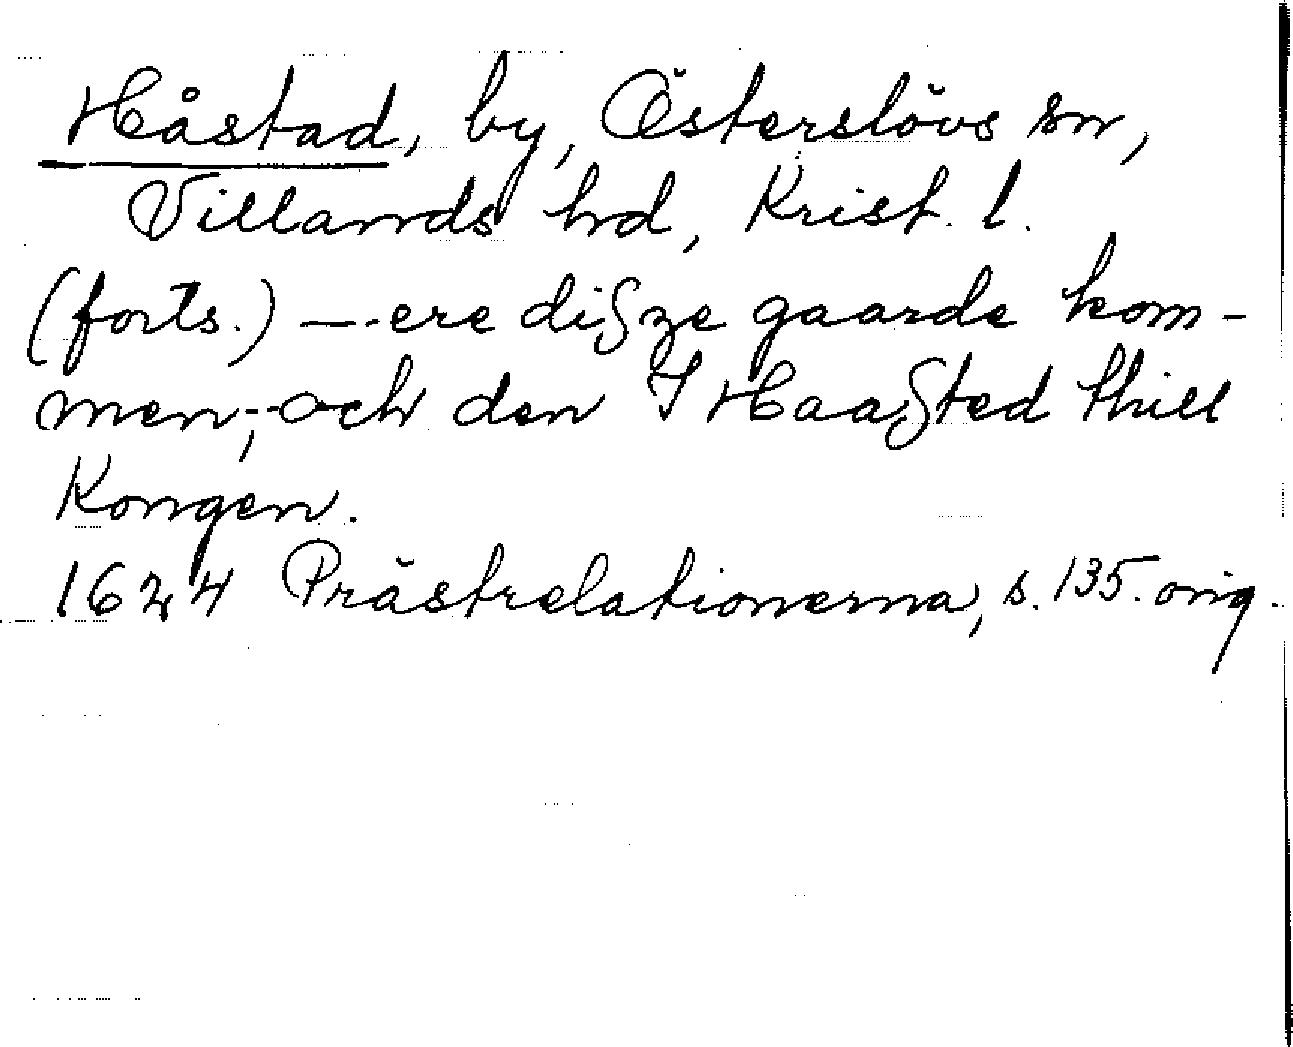 Håstad, by, Österslövs sn,
Villands hd, Krist. l.
(forts.) — ere diſze gaarde kom-
men, och den I Haaſted thill
Kongen.
1624 Prästrelationerna, s. 135. orig.